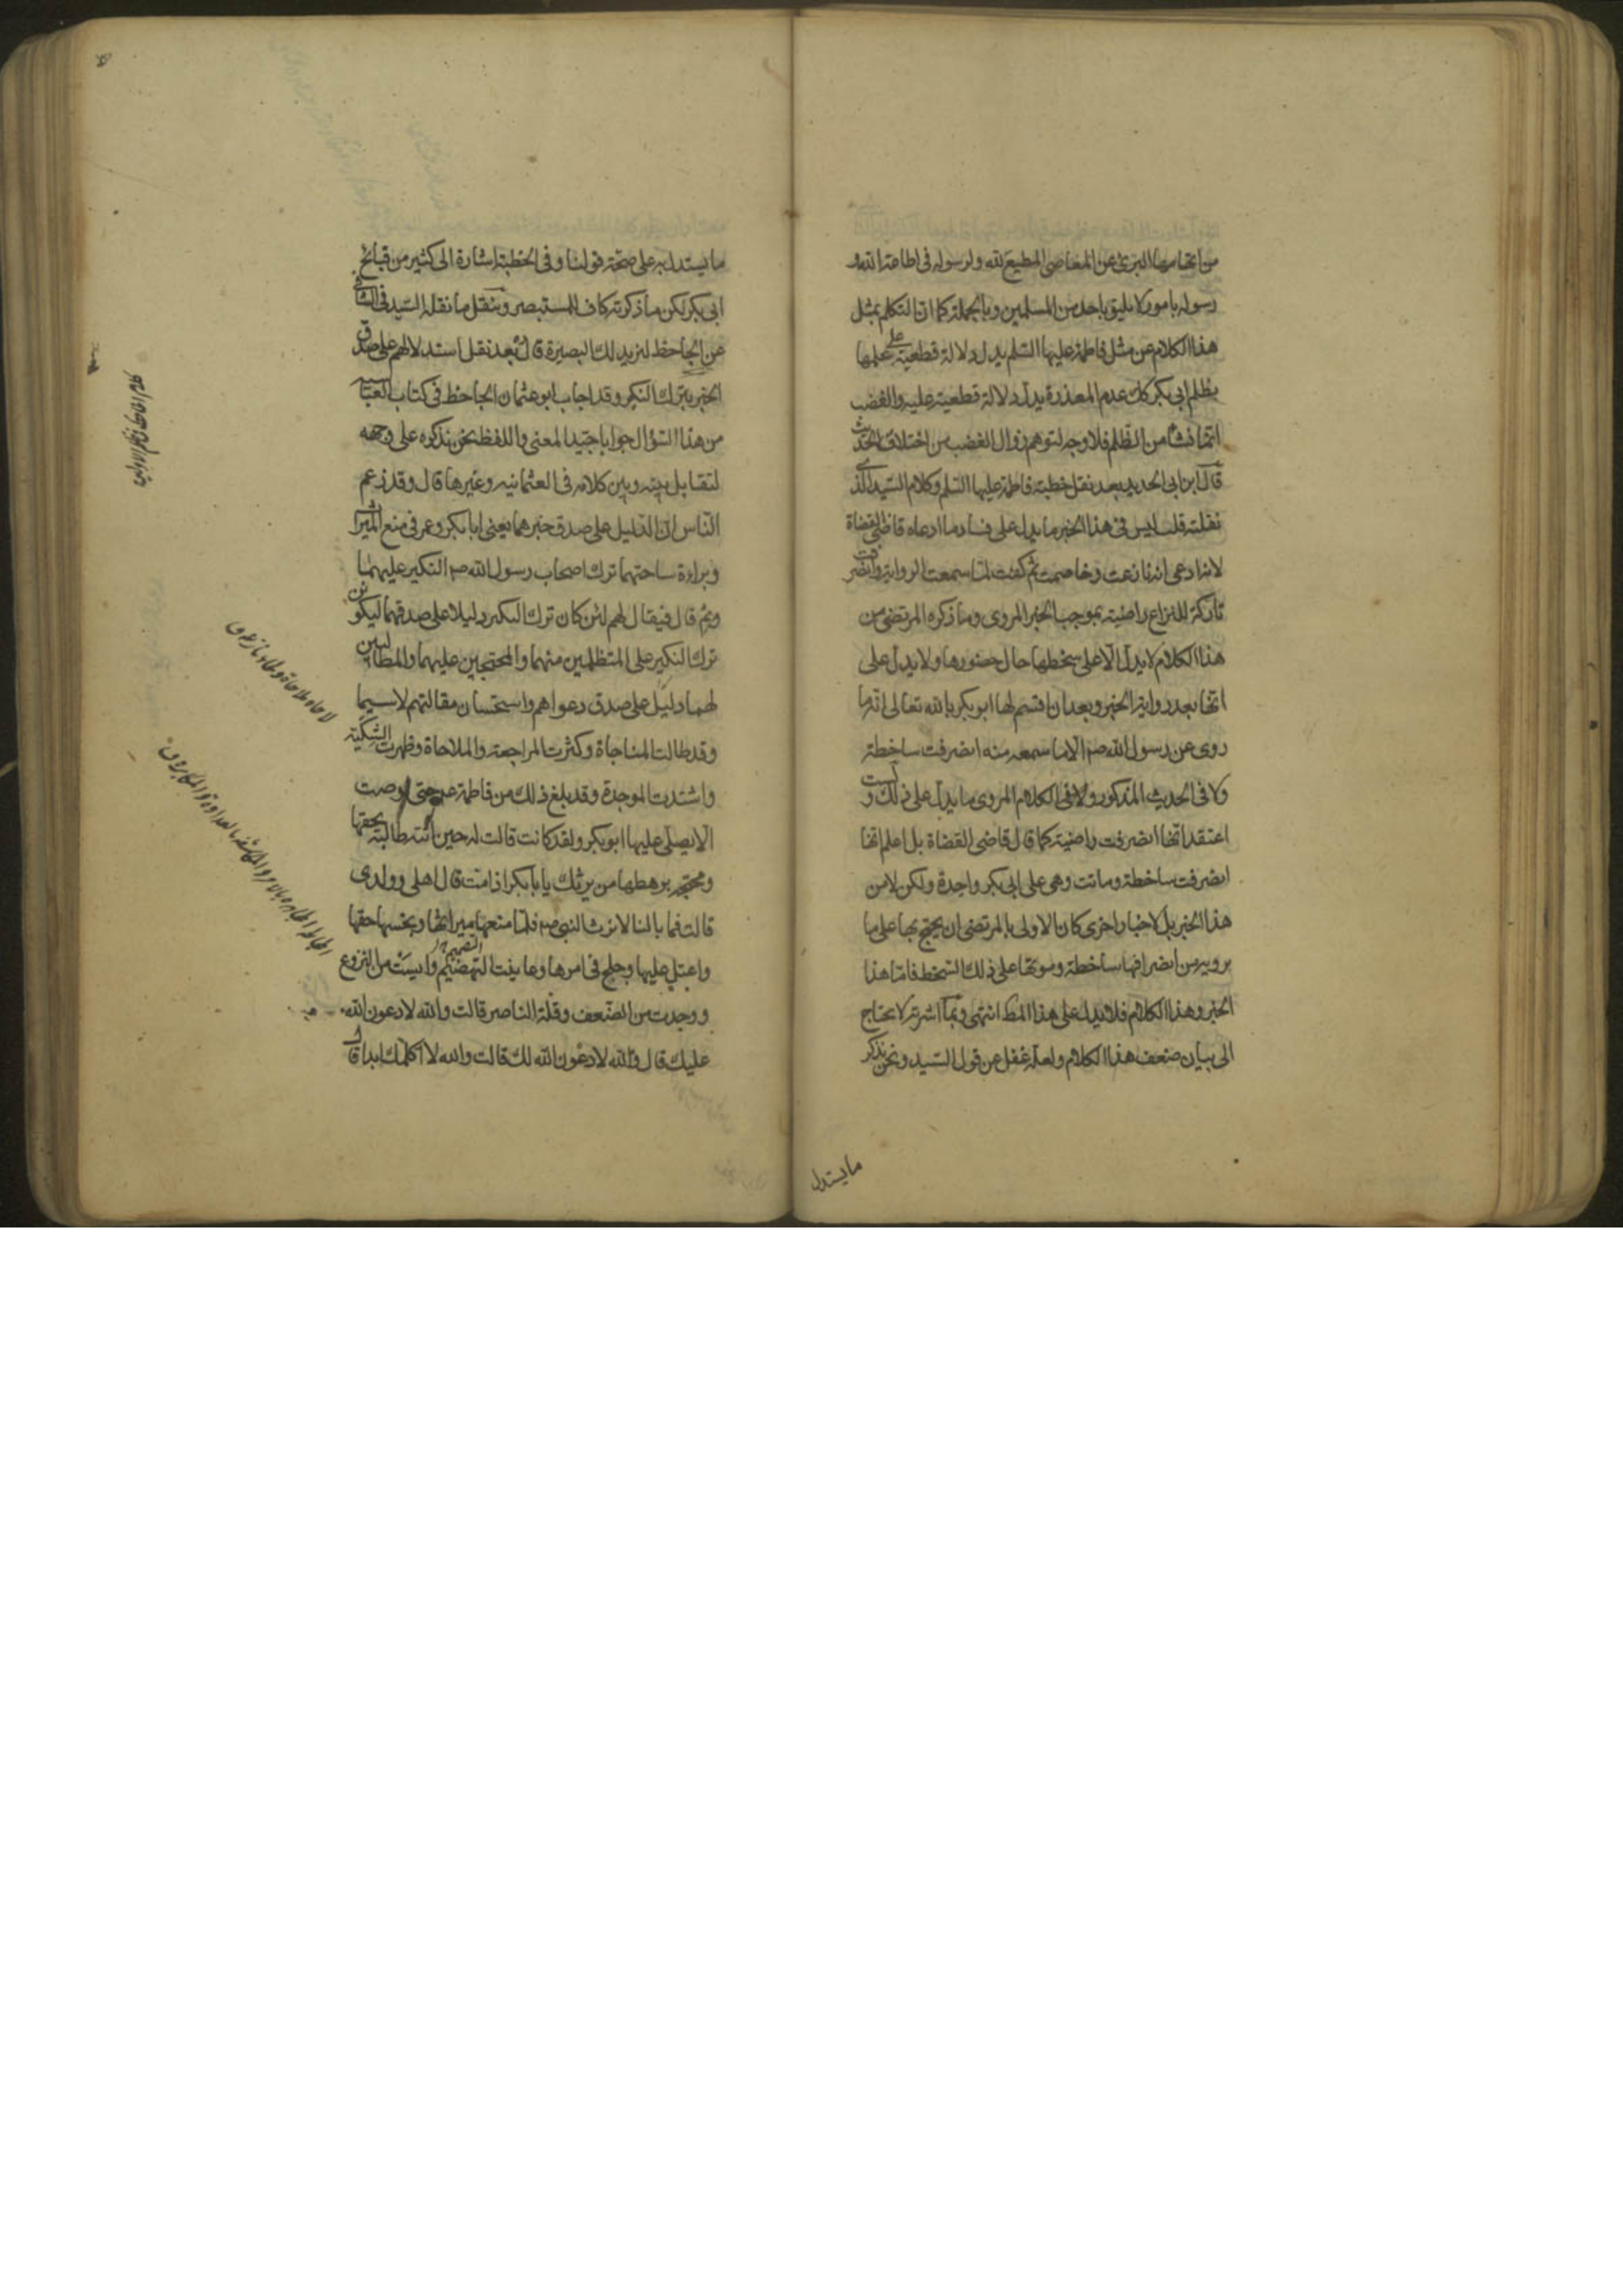 من اتهامها البرئ عن المعاصى المطيع لله ولرسوله فى اطاعة الله و
رسوله بامور لا يليق باحد من المسلمين وبالجملة كما ان التكلم بمثل
هذا الكلام عن مثل فاطمة عليها السلم يدل دلالة قطعية على علمها
بظلم ابى بكر كك عدم المعذرة يدل دلالة قطعية عليه والغضب
انما نشأ من الظلم فلا وجه لتوهم زوال الغضب من اختلاق الحديث
قال ابن ابى الحديد بعد نقل خطبة فاطمة عليها السلم وكلام السيد الذى
نقلته قلت ليس فى هذا الخبر ما يدل على فساد ما ادعاه قاضى القضاة
لانه ادعى انها نازعت وخاصمت ثم كفت لما سمعت الرواية وانصرفت
تاركة للنزاع راضية بموجب الخبر المروى وما ذكره المرتضى من
هذا الكلام لا يدل الا على سخطها حال حضورها ولا يدل على
انها بعد رواية الخبر وبعد ان اقسم لها ابو بكر بالله تعالى انه ما
روى عن رسول الله صم الا ما سمعه منه انصرفت ساخطة
ولا فى الحديث المذكور ولا فى الكلام المروى ما يدل على ذلك ولست
اعتقد انها انصرفت راضية كما قال قاضى القضاة بل اعلم انها
انصرفت ساخطة وماتت وهى على ابى بكر واجدة ولكن لا من
هذا الخبر بل لاخبار اخرى كان الاولى بالمرتضى ان يحتج بها على ما
يرويه من انصرافها ساخطة وموتها على ذلك السخط فاما هذا
الخبر وهذا الكلام فلا يدل على هذا المط انتهى وبما اشرته لا يحتاج
الى بيان ضعف هذا الكلام ولعله غفل عن قول السيد ونحن نذكر
ما يستدل
ما يستدل به على صحة قولنا وفى الخطبة اشارة الى كثير من قبائح
ابى بكر لكن ما ذكرته كاف للمستبصر وننقل ما نقله السيد فى الشافى
عن الجاحظ لنزيد لك البصيرة قال بعد نقل استدلالهم على صدق
الخبر بترك النكير وقد اجاب ابو عثمان الجاحظ فى كتاب العباسية
من هذا السؤال جوابا جيد المعنى واللفظ نحن نذكره على وجهه
لتقابل بينه وبين كلامه فى العثمانيه وغيرها قال وقد زعم
الناس ان الدليل على صدق خبرهما يعنى ابا بكر وعمر فى منع الميراث
وبراءة ساحتهما ترك اصحاب رسول الله صم النكير عليهما
ثم قال فيقال لهم لئن كان ترك النكير دليلا على صدقهما ليكونن
ترك النكير على المتظلمين منهما والمحتجين عليهما والمطالبين
لهما دليل على صدق دعواهم واستحسان مقالتهم لاسيما
وقد طالت المناجاة وكثرت المراجعة والملاحاة وظهرت الشكية
واشتدت الموجدة وقد بلغ ذلك من فاطمة ع حتى اوصت
الا يصلى عليها ابو بكر ولقد كانت قالت له حين اتته طالبة بحقها
ومحتجه برهطها من يرثك يا با بكر اذا مت قال اهلى وولدى
قالت فما بالنا لا نرث النبى صم فلما منعها ميراثها وبخسها حقها
واعتل عليها وجلح فى امرها وعاينت التهضم وايست من النزوع
ووجدت من الضعف وقلة الناصر قالت والله لادعون الله
عليك قال والله لادعون الله لك قالت والله لا اكلمك ابدا قال